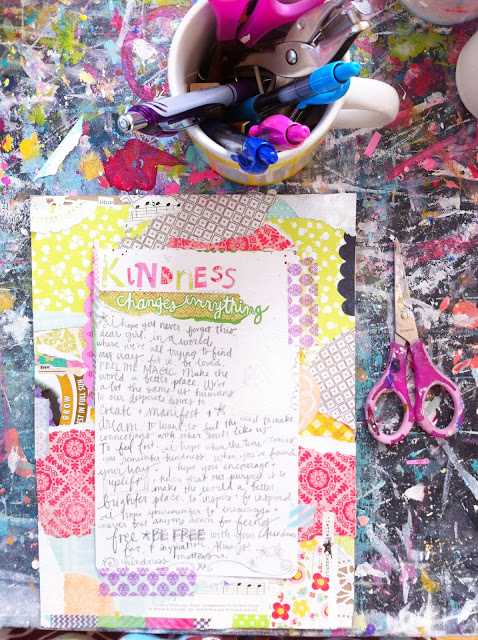 KINDNESS
changes everything
i hope you never forget this
dear girl. in a world
where we're all trying to find
our way to be loved.
FEEL THE MAGIC. Make the
world a better place. We're
a lot the same us humans
in our desperate desires to
create + manifest +
dream to want to feel the need to make
connections with other souls like us
To feel free. i hope when the time comes
you remember kindness. when you've found
your way. i hope you encourage +
uplift. know that our purpose is to
make the world a better
brighter place. to inspire + be inspired
i hope you remember to encourage +
never tear anyone down for being
free BE FREE with your kindness
love, + inspiration. always.
kindness matters
xo
GROW
BEST IN FULL SUN